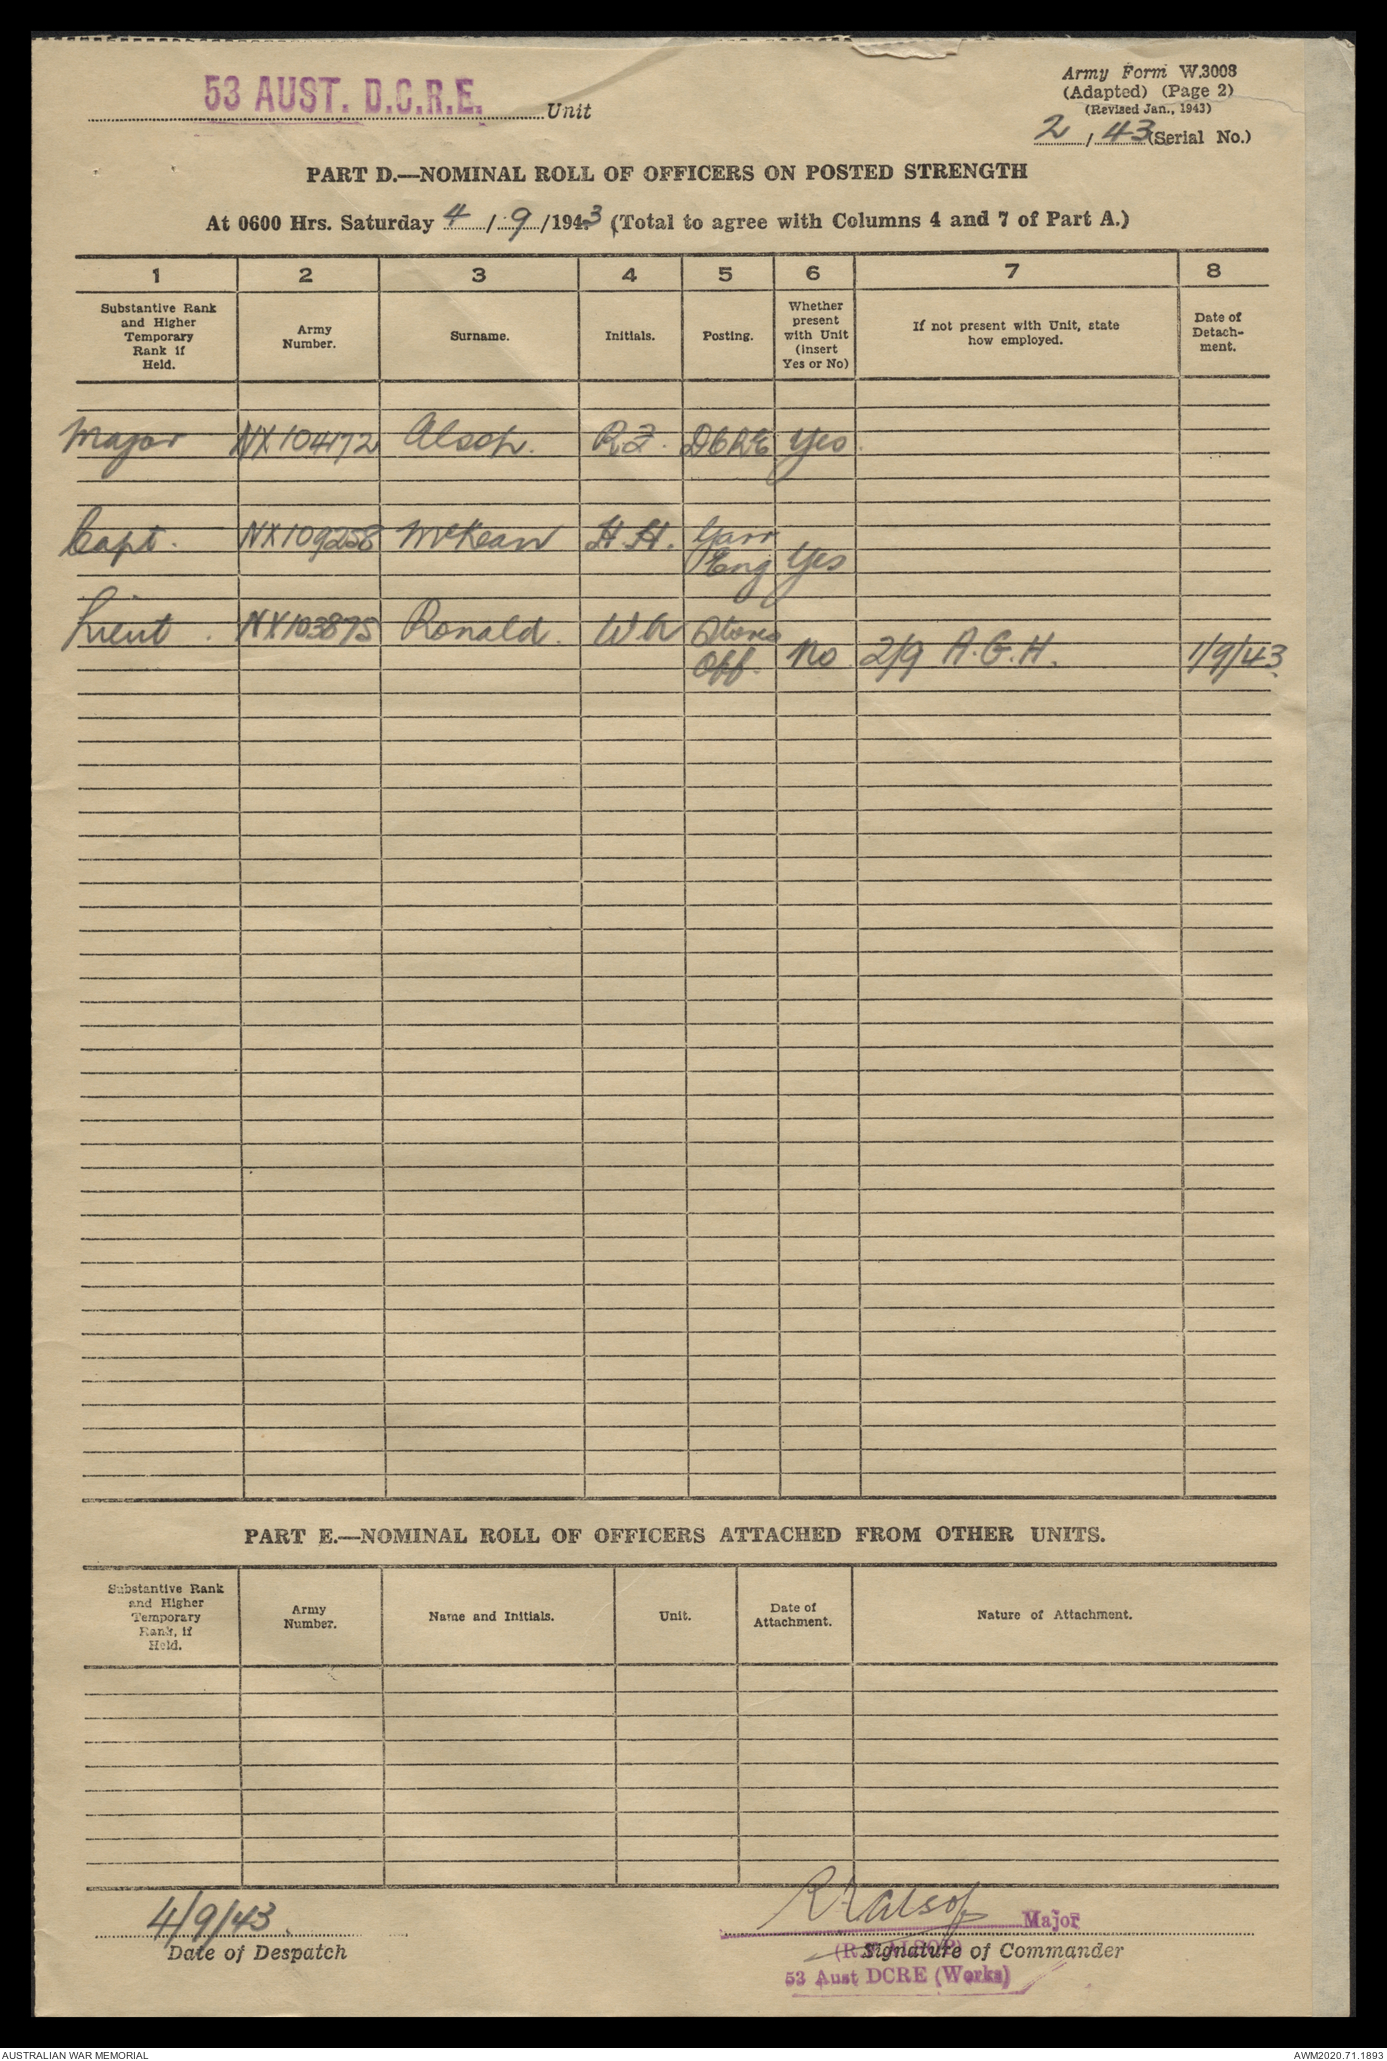 53 AUST. D.C.R.E. Unit
Army Form W.3008
(Adapted) (Page 2)
(Revised Jan., 1943)
2 / 43 (Serial No.)
PART D.—NOMINAL ROLL OF OFFICERS ON POSTED STRENGTH
At 0600 Hrs. Saturday 4 / 9 /1943 (Total to agree with Columns 4 and 7 of Part A.)
1 2 3 4 5 6 7 8
Substantive Rank and Higher Temporary Rank if Held.
Army Number.
Surname.
Initials.
Posting.
Whether present with Unit (insert Yes or No)
If not present with Unit, state how employed.
Date of Detach-ment.
Major NX104172 Alsop. R.F. DCRE Yes.
Capt. NX109258 McKean H.H. Garr Eng Yes
Lieut. NX103875 Ronald. W A Stores Off. No 2/9 A.G.H. 1/9/43.
PART E.—NOMINAL ROLL OF OFFICERS ATTACHED FROM OTHER UNITS.
Substantive Rank and Higher Temporary Rank, if Held.
Army Number.
Name and Initials.
Unit.
Date of Attachment.
Nature of Attachment.
4/9/43
Date of Despatch
RF Alsop Major
(R.F. ALSOP)
Signature of Commander
53 Aust DCRE (Works)
AUSTRALIAN WAR MEMORIAL
AWM2020.71.1893